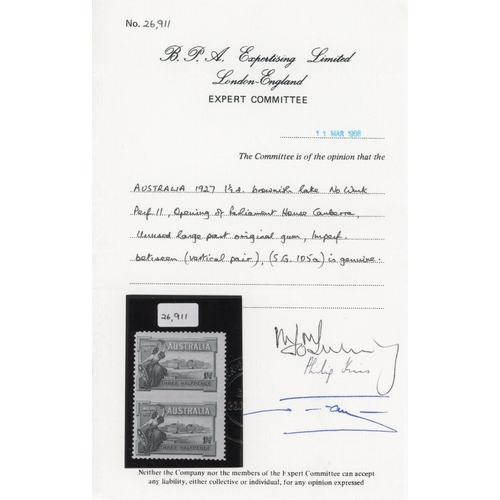 No. 26,911
B. P. A. Expertising Limited
London-England
EXPERT COMMITTEE
11 MAR 1998
The Committee is of the opinion that the
AUSTRALIA 1927 1½d. brownish lake No Wmk
Perf 11, Opening of Parliament House Canberra,
Unused large part original gum, Imperf.
between (vertical pair), (S.G. 105a) is genuine.
26,911
AUSTRALIA
THREE HALFPENCE
AUSTRALIA
THREE HALFPENCE
Neither the Company nor the members of the Expert Committee can accept
any liability, either collective or individual, for any opinion expressed